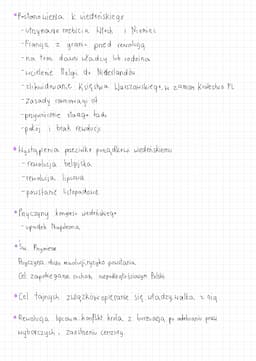 • Postanowienia k wiedeńskiego
- utrzymano rozbicia Włoch i Niemiec
- Francja z granic przed rewolucją
- na tron dawni władcy lub rodzina
- wcielenie Belgi do Niderlandów
- zlikwidowanie Księstwa Warszawskiego, w zamian Królestwo PL
- zasady
- przywrócenie starego ładu
- pokój i brak rewolucji
• Wystąpienia przeciwko porządkowi wiedeńskiemu
- rewolucja belgijska
- rewolucja lipcowa
- powstanie listopadowe
• Przyczyny kongresu wiedeńskiego
- upadek Napoleona
• Św. Przymierze
Przyczyna: duża powstania
Cel zapobieganie niepodległościowym Polski
• Cel tajnych związków opieranie się władzy, walka z nią
• Rewolucja lipcowa: konflikt króla z burżuazją po odebraniu praw
wyborczych, zaostrzeniu cenzury.